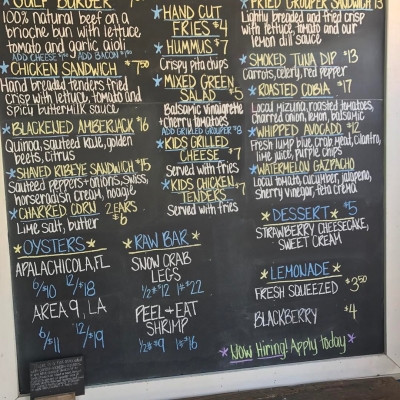 GULF BURGER
100% natural beef on a
brioche bun with lettuce
tomato and garlic aioli
ADD CHEESE $1.00 ADD BACON $1.00
CHICKEN SANDWICH $7.50
Hand breaded tenders fried
crisp with lettuce, tomato and
spicy buttermilk sauce
BLACKENED AMBERJACK $16
Quinoa, sauteed kale, golden
beets, citrus
SHAVED RIBEYE SANDWICH $15
Sauteed peppers + onions, swiss,
horseradish cream, hoagie
CHARRED CORN 2 EARS
$6
Lime salt, butter
OYSTERS
APALACHICOLA, FL
6/$10 12/$18
AREA 9, LA
6/$11 12/$19
HAND CUT
FRIES $4
HUMMUS $7
Crispy pita chips
MIXED GREEN
SALAD $5
Balsamic vinaigrette
+ Cherry tomatoes
ADD GRILLED GROUPER $8
KIDS GRILLED
CHEESE $7
Served with fries
KIDS CHICKEN
TENDERS $7
Served with fries
RAW BAR
SNOW CRAB
LEGS
1/2# $12 1# $22
PEEL + EAT
SHRIMP
1/2# $9 1# $16
FRIED GROUPER SANDWICH 13
Lightly breaded and fried crisp
with lettuce, tomato and our
lemon dill sauce
SMOKED TUNA DIP $13
Carrots, celery, red pepper
ROASTED COBIA $17
Local mizuna, roasted tomatoes,
charred onion, lemon, balsamic
WHIPPED AVOCADO $12
Fresh lump blue crab meat, cilantro,
lime juice, purple chips
WATERMELON GAZPACHO
Local tomato, cucumber, jalapeño,
sherry vinegar, feta crema
DESSERT $5
STRAWBERRY CHEESECAKE,
SWEET CREAM
LEMONADE
FRESH SQUEEZED $3.50
BLACKBERRY $4
Now Hiring! Apply today